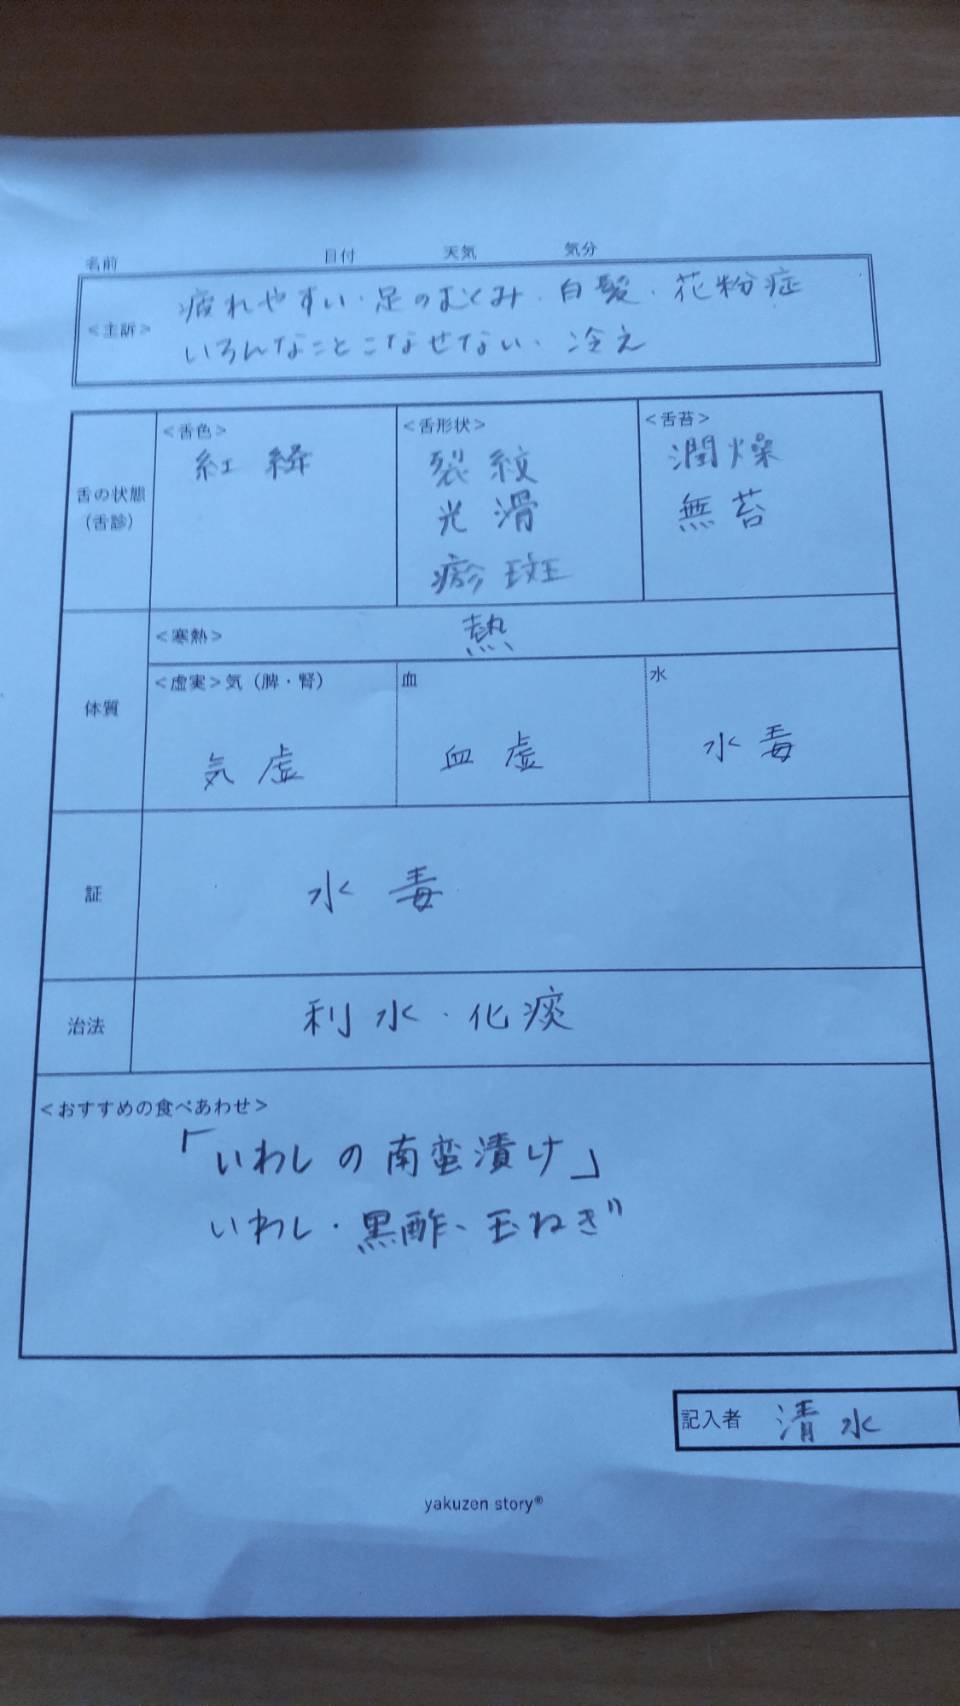 名前 日付 天気 気分
<主訴>
疲れやすい・足のむくみ・白髪・花粉症
いろんなことこなせない・冷え
舌の状態
(舌診)
<舌色>
紅絳
<舌形状>
裂紋
光滑
瘀斑
<舌苔>
潤燥
無苔
体質
<寒熱>
熱
<虚実>気（脾・腎）
気虚
血
血虚
水
水毒
証
水毒
治法
利水・化痰
<おすすめの食べあわせ>
「いわしの南蛮漬け」
いわし・黒酢、玉ねぎ
記入者 清水
yakuzen story®